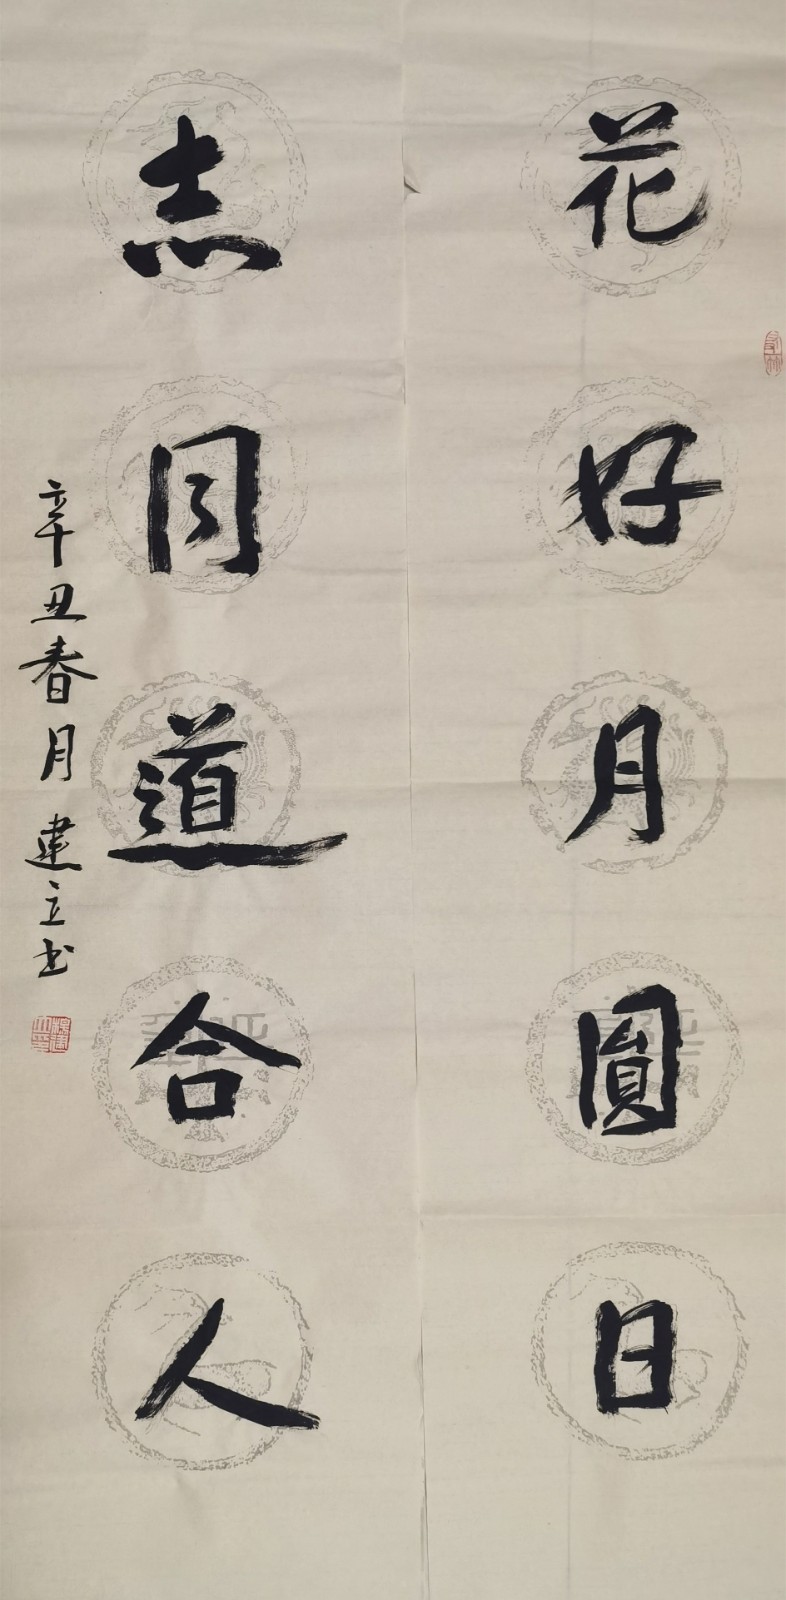 花好月圓日
志同道合人
辛丑春月建立书